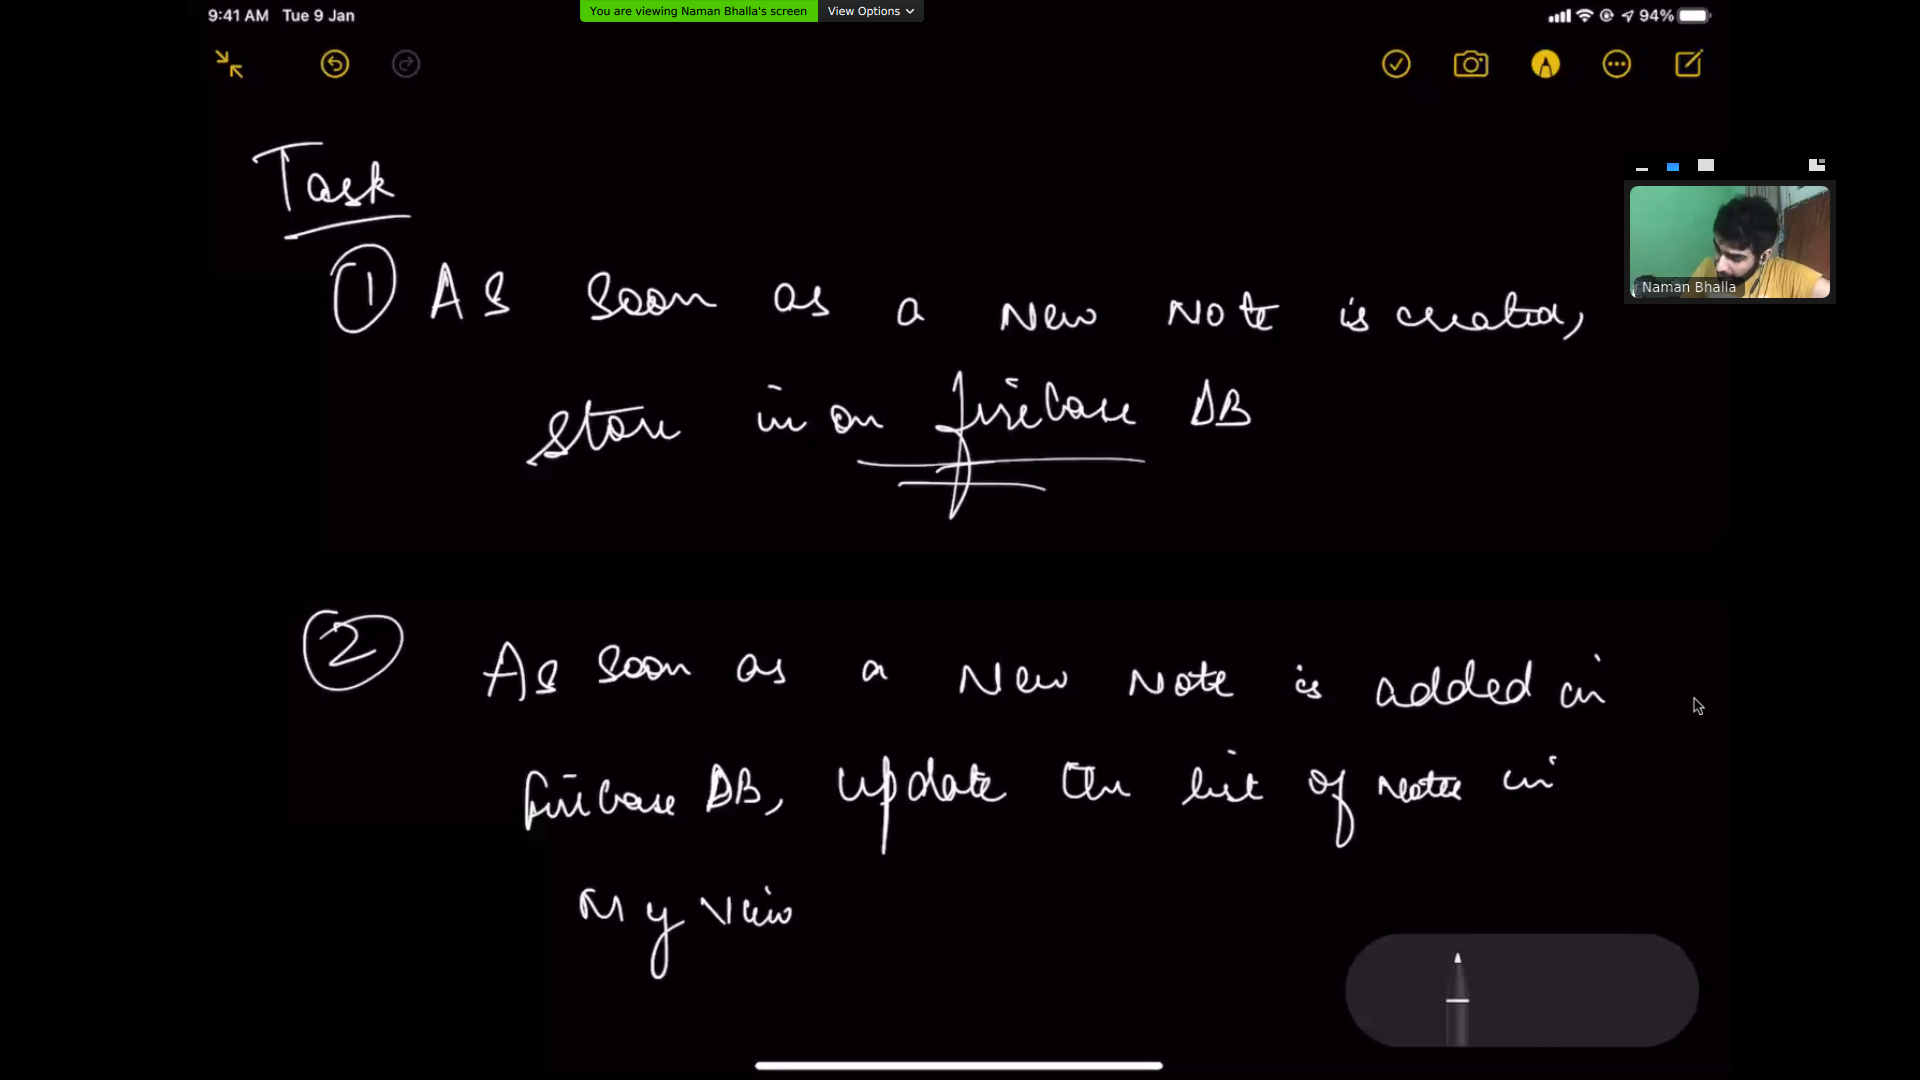 9:41 AM Tue 9 Jan
You are viewing Naman Bhalla's screen View Options
94%
Task
1 As soon as a New Note is created,
store in on firebase DB
Naman Bhalla
2 As soon as a New Note is added in
firebase DB, update the list of notes in
My view